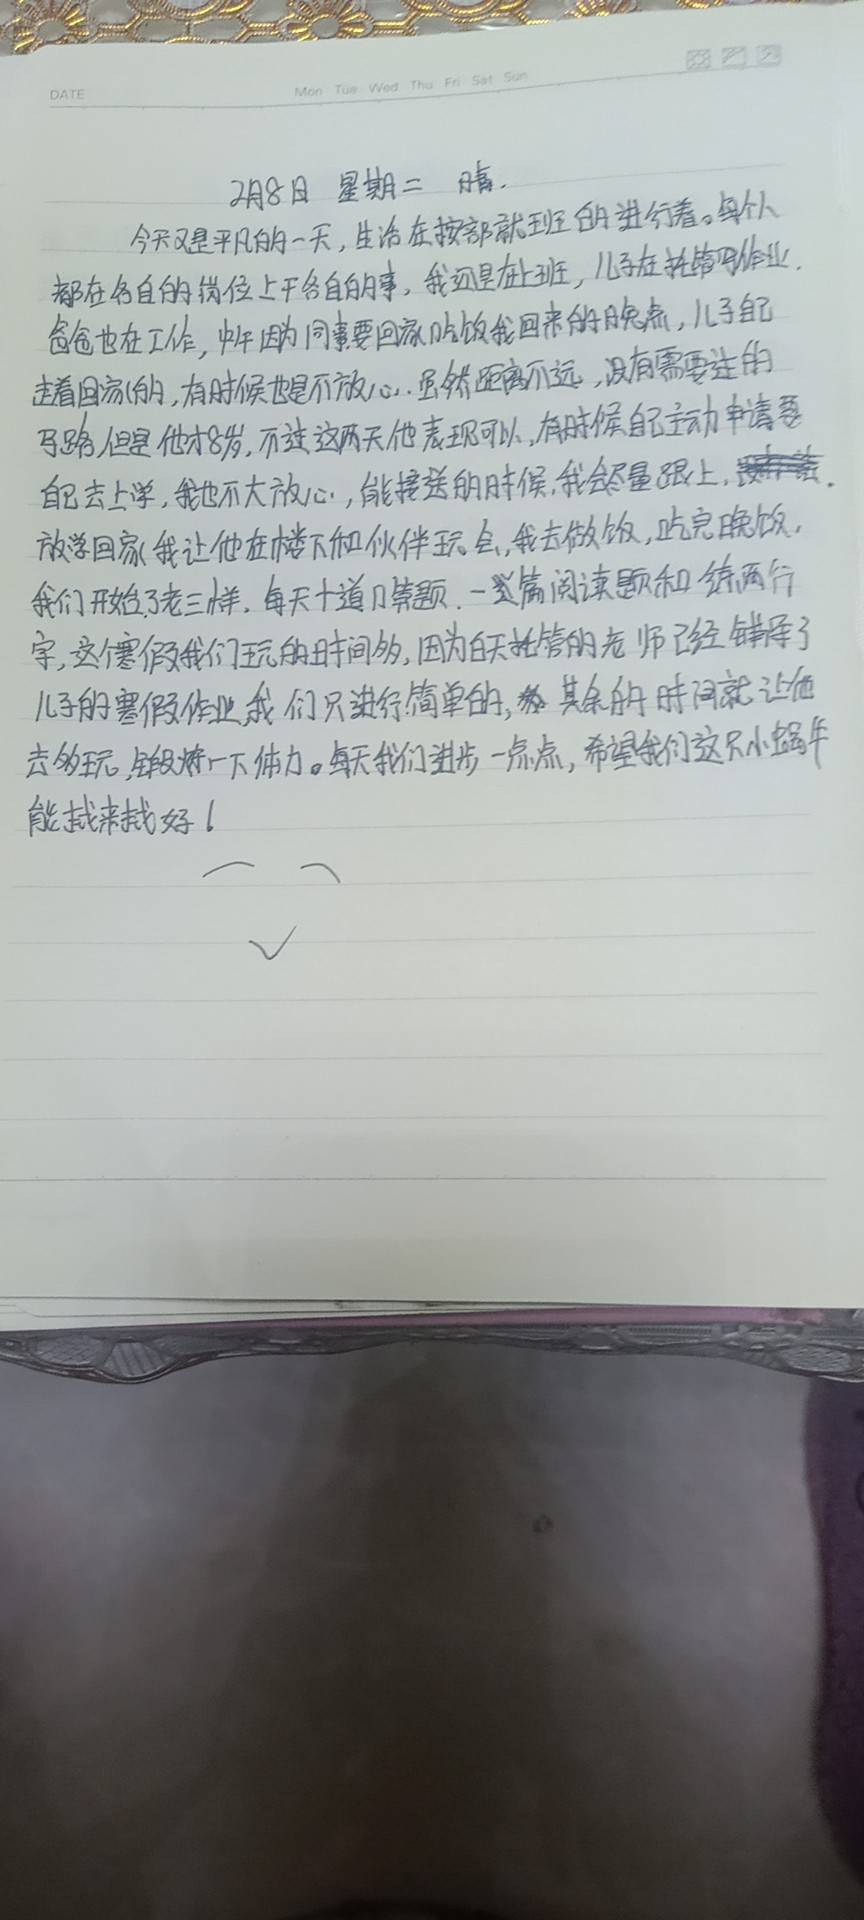 DATE
Mon Tue Wed Thu Fri Sat Sun
2月8日 星期二 晴.
今天又是平凡的一天,生活在按部就班的进行着。每个人
都在各自的岗位上干各自的事,我还是在上班,儿子在托管写作业.
爸爸也在工作,中午因为同事要回家吃饭我回来的晚点,儿子自己
走着回家的,有时候也是不放心.虽然距离不远,没有需要过的
马路,但是他才8岁,不过这两天他表现可以,有时候自己主动申请要
自己去上学,我也不大放心,能接送的时候,我会尽量跟上,
放学回家我让他在楼下和伙伴玩会,我去做饭,吃完晚饭,
我们开始了老三样,每天十道口算题.一篇阅读题和练两行
字,这个寒假我们玩的时间多,因为白天托管的老师已经辅导了
儿子的寒假作业,我们只进行简单的,其余的时间就让他
去多玩,锻炼一下体力。每天我们进步一点点,希望我们这只小蜗牛
能越来越好!